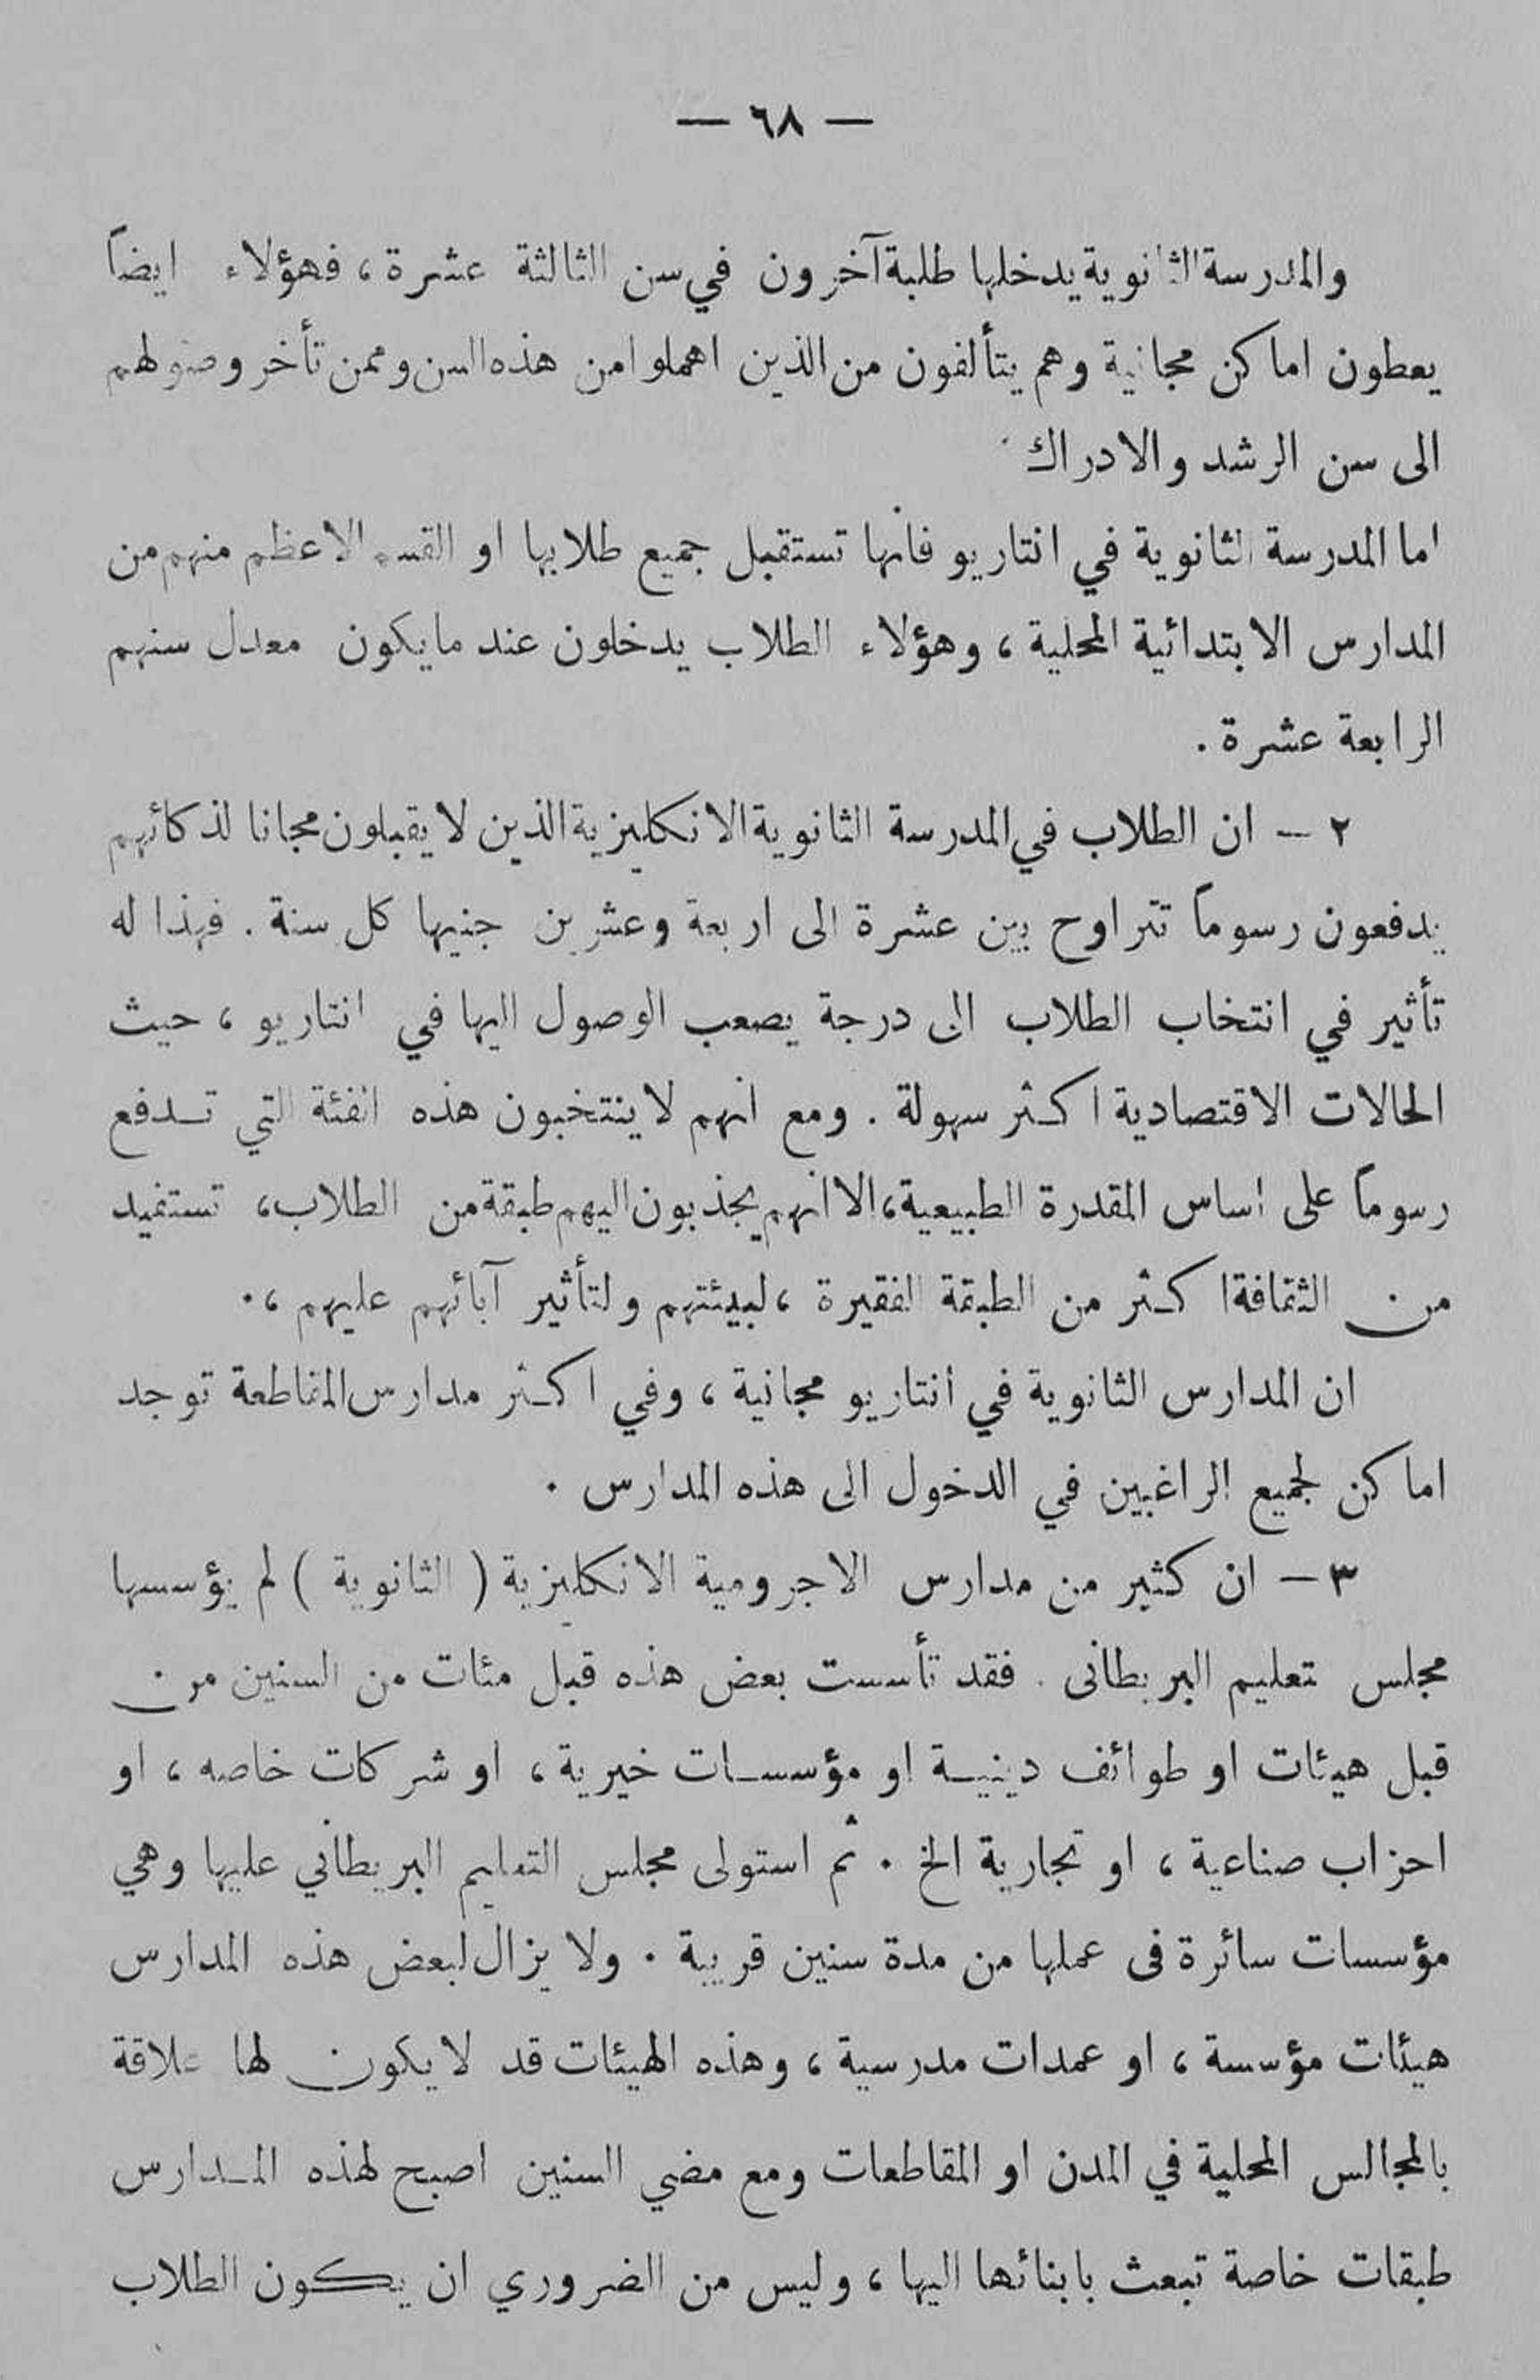 — ٦٨ —
والمدرسة الثانوية يدخلها طلبة آخرون في سن الثالثة عشرة ، فهؤلاء ايضاً
يعطون اماكن مجانية وهم يتألفون من الذين اهملوا من هذه السن وممن تأخر وصولهم
الى سن الرشد والادراك
اما المدرسة الثانوية في انتاريو فانها تستقبل جميع طلابها او القسم الاعظم منهم من
المدارس الابتدائية المحلية ، وهؤلاء الطلاب يدخلون عند ما يكون معدل سنهم
الرابعة عشرة .
٢ — ان الطلاب في المدرسة الثانوية الانكليزية الذين لا يقبلون مجانا لذكائهم
يدفعون رسوماً تتراوح بين عشرة الى اربعة وعشرين جنيها كل سنة . فهذا له
تأثير في انتخاب الطلاب الى درجة يصعب الوصول اليها في انتاريو ، حيث
الحالات الاقتصادية اكثر سهولة . ومع انهم لا ينتخبون هذه الفئة التي تدفع
رسوماً على اساس المقدرة الطبيعية ، الا انهم يجذبون اليهم طبقة من الطلاب ، تستفيد
من الثقافة اكثر من الطبقة الفقيرة ، لبيئتهم ولتأثير آبائهم عليهم ، .
ان المدارس الثانوية في أنتاريو مجانية ، وفي اكثر مدارس المقاطعة توجد
اماكن لجميع الراغبين في الدخول الى هذه المدارس .
٣ — ان كثير من مدارس الاجرومية الانكليزية ( الثانوية ) لم يؤسسها
مجلس تعليم البريطانى . فقد تأسست بعض هذه قبل مئات من السنين من
قبل هيئات او طوائف دينية او مؤسسات خيرية ، او شركات خاصه ، او
احزاب صناعية ، او تجارية الخ . ثم استولى مجلس التعليم البريطاني عليها وهي
مؤسسات سائرة فى عملها من مدة سنين قريبة . ولا يزال لبعض هذه المدارس
هيئات مؤسسة ، او عمدات مدرسية ، وهذه الهيئات قد لا يكون لها علاقة
بالمجالس المحلية في المدن او المقاطعات ومع مضي السنين اصبح لهذه المدارس
طبقات خاصة تبعث بابنائها اليها ، وليس من الضروري ان يكون الطلاب